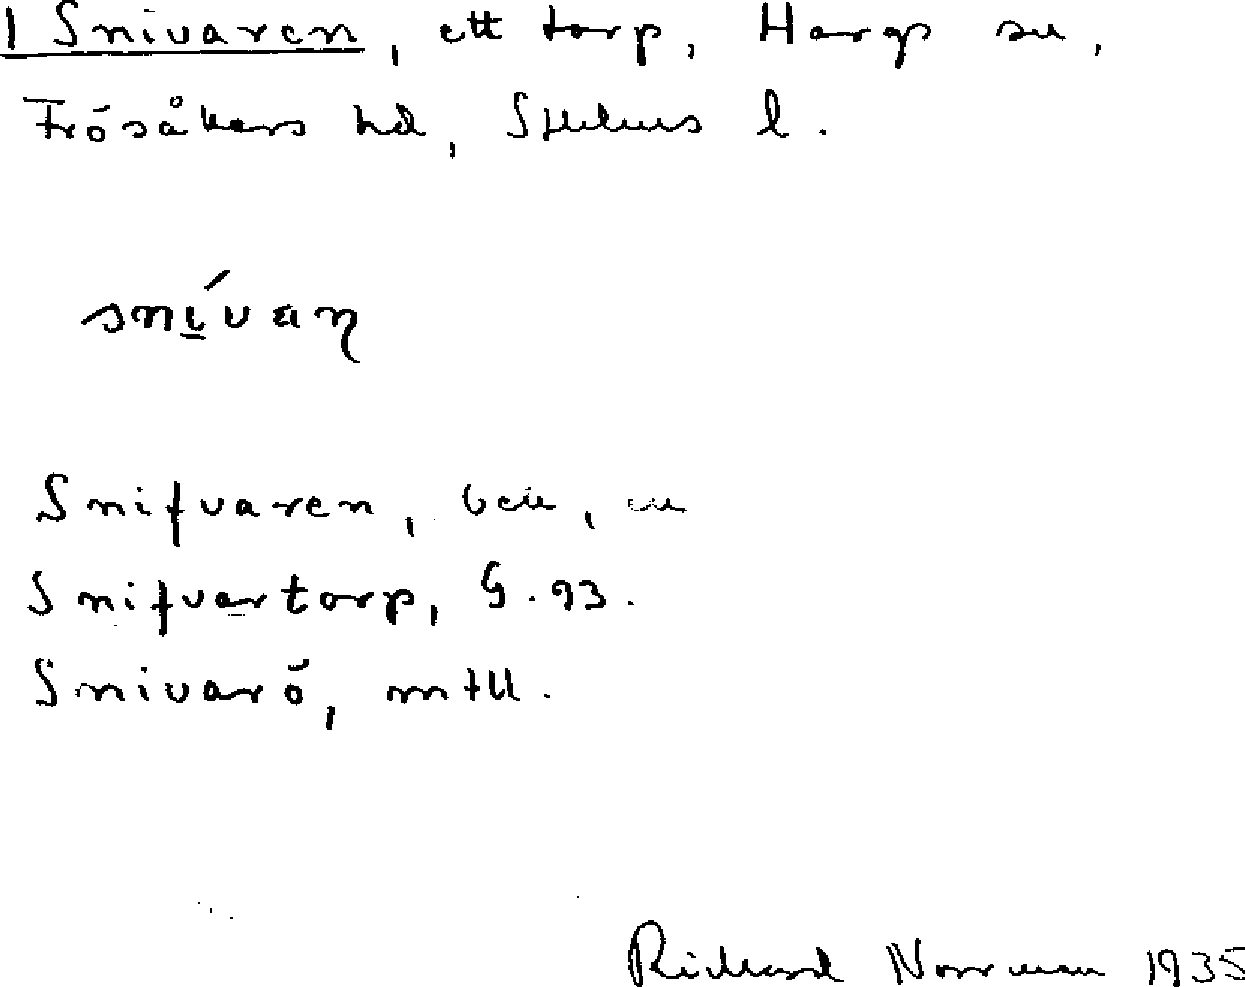 1 Snivaren, ett torp, Hargs sn,
Frösåkers hd, Sthlms l.
snívaη
Snifvaren, ben, en
Snifvartorp, G. 93.
Snivarö, mtll.
Richard Norrman 1935